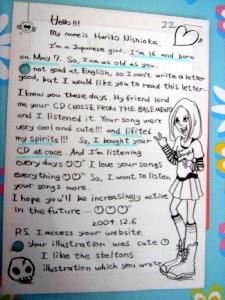 Hello!!!
22
My name is Noriko Nishioka.
I'm a Japanese girl. I'm 16 and born
on May 7. So, I am as old as you.
not good at English, so I can't write a letter
good, but I would like you to read this letter...
I know you these days. My friend lend
me your CD CHOOSE FROM THE BASEMENT
and I listened it. Your song were
very cool and cute!!! and lifited
my spirits!!! So, I bought your
CD at once. And I'm listening
every days I love your songs
everything So, I want to listen
your songs more.
I hope you'll be increasingly active
in the future
2004.12.6
P.S. I access your website.
Your illustration was cute
I like the skeltons
illustration which you wrote